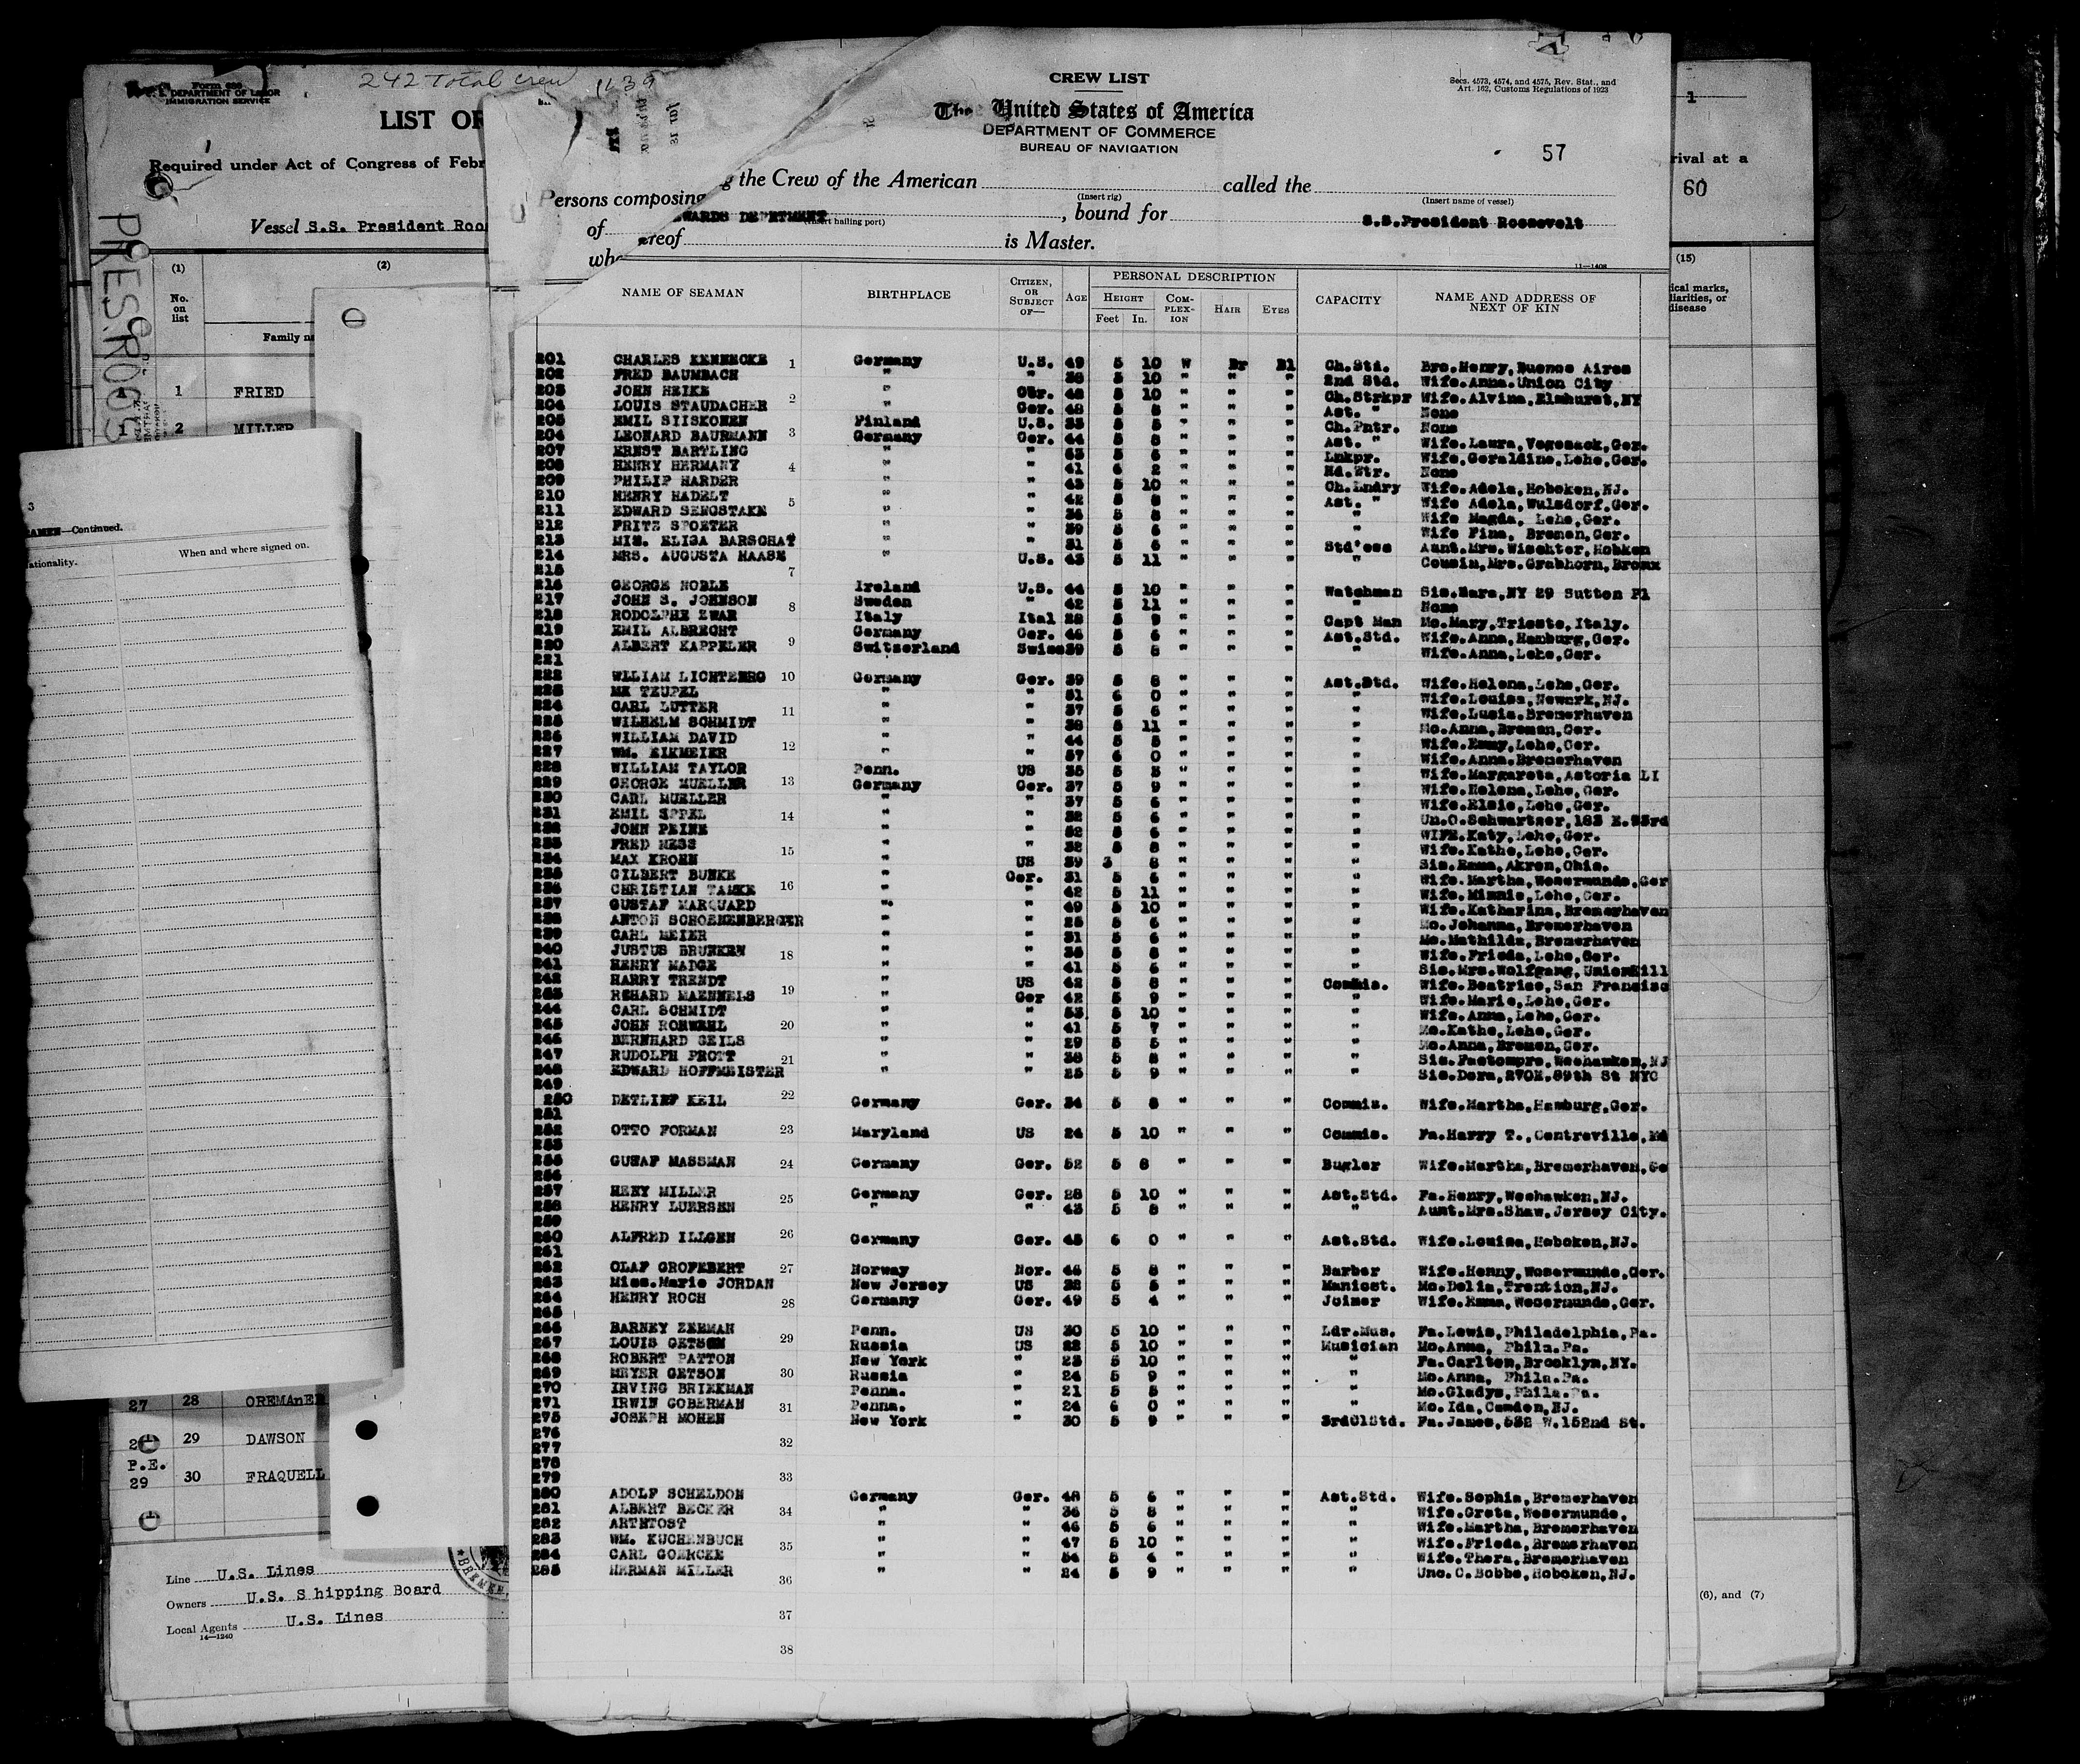 242 Total crew
U. S. DEPARTMENT OF LABOR
IMMIGRATION SERVICE
LIST OF
Required under Act of Congress of Febr
Vessel S.S. President Roo
PRES. ROOS
(1) (2)
No. on list
Family na
1 FRIED
2 MILLER
3
—Continued.
ationality. When and where signed on.
27 28 OREMAnEN
29 DAWSON
P.E.
29 30 FRAQUELL
Line U.S. Lines
Owners U.S. S hipping Board
Local Agents U.S. Lines
14—1240
CREW LIST
The United States of America
DEPARTMENT OF COMMERCE
BUREAU OF NAVIGATION
Secs. 4573, 4574, and 4575, Rev. Stat., and
Art. 162, Customs Regulations of 1923
57
Persons composing the Crew of the American called the
(Insert rig) (Insert name of vessel)
of WARDS DEPRTMENT , bound for S.S.President Roosevelt
(Insert hailing port)
who ereof is Master.
11—1408
NAME OF SEAMAN BIRTHPLACE CITIZEN, OR SUBJECT OF— AGE PERSONAL DESCRIPTION CAPACITY NAME AND ADDRESS OF NEXT OF KIN
HEIGHT COM-PLEX-ION HAIR EYES
Feet In.
201 CHARLES KENNECKE 1 Germany U.S. 49 5 10 W Br Bl Ch.Std. Bro.Henry,Buenos Aires
202 FRED BAUMBACH " " 38 5 10 " " " 2nd Std. Wife.Anna.Union City
203 JOHN HEIKE 2 " Ger. 48 5 10 " " " Ch.Strkpr Wife.Alvina,Elmhurst,NY
204 LOUIS STAUDACHER " Ger. 48 5 8 " " " Ast. " None
205 EMIL SIISKONEN Finland U.S. 33 5 5 " " " Ch.Pntr. None
204 LEONARD BAURMANN 3 Germany Ger. 44 5 8 " " " Ast. " Wife.Laura,Vegesack,Ger.
207 ERNST BARTLING " " 63 5 6 " " " Lnkpr. Wife.Geraldine,Lehe,Ger.
208 HENRY HERMANY 4 " " 41 6 2 " " " Hd.Wtr. None
209 PHILIP HARDER " " 43 5 10 " " " Ch.Lndry Wife.Adela,Hoboken,NJ.
210 HENRY HADELT 5 " " 42 5 8 " " " Ast. " Wife Adela,Wulsdorf,Ger.
211 EDWARD SENGSTAKE " " 36 5 8 " " " " Wife Magda, Lehe,Ger.
212 FRITZ SPORTER " " 39 5 6 " " " " Wife Fina, Bremen,Ger.
213 MIS. ELIGA BARSCHAT " " 31 5 6 " " " Std'ess Aunt.Mrs.Wischter,Hobken
214 MRS. AUGUSTA HAASE " U.S. 43 5 11 " " " " Cousin,Mrs.Grabhorn,Bronx
215 7
216 GEORGE NOBLE Ireland U.S. 44 5 10 " " " Watchman Sis.Nara,NY 29 Sutton Pl
217 JOHN S. JOHNSON 8 Sweden " 42 5 11 " " " " None
218 RODOLPHE ZWAR Italy Ital 28 5 9 " " " Capt Man Mo.Mary,Trieste,Italy.
219 EMIL ALBRECHT Germany Ger. 46 5 6 " " " Ast.Std. Wife.Anna,Hamburg,Ger.
220 ALBERT KAPPELER 9 Switzerland Swiss39 5 8 " " " " Wife.Anna,Lehe,Ger.
221
222 WLLIAM LICHTENBG 10 Germany Ger. 39 5 8 " " " Ast.Std. Wife.Helena,Lehe,Ger.
223 MK TEUPEL " " 51 6 0 " " " " Wife.Louisa,Newark,NJ.
224 CARL LUTTER 11 " " 37 5 6 " " " " Wife.Lucia.Bremerhaven
225 WILHELM SCHMIDT " " 38 5 11 " " " " Mo.Anna,Bremen,Ger.
226 WILLIAM DAVID " " 44 5 5 " " " " Wife.Emmy,Lehe,Ger.
227 WM. EIKMEIER 12 " " 57 6 0 " " " " Wife.Anna.Bremerhaven
228 WILLIAM TAYLOR Penn. US 35 5 5 " " " " Wife.Margareta,Astoria LI
229 GEORGE MUELLER 13 Germany Ger. 37 5 9 " " " " Wife.Helena,Lehe,Ger.
230 CARL MUELLER " " 37 5 6 " " " " Wife.Elsie,Lehe,Ger.
231 EMIL EPPEL 14 " " 32 5 6 " " " " Un.O.Schwartzer,183 E.93rd
232 JOHN PEINE " " 52 5 6 " " " " WIFE.Katy,Lehe,Ger.
233 FRED HESS 15 " " 32 5 8 " " " " Wife.Kathe,Lehe,Ger.
234 MAX KROEN " US 39 3 8 " " " " Sis.Emma,Akron,Ohio.
235 GILBERT BUNKE " Ger. 31 5 6 " " " " Wife.Martha,Wesermunde,Ger
236 CHRISTIAN TAMKE 16 " " 42 5 11 " " " " Wife.Minnie,Lehe,Ger.
237 GUSTAF MARQUARD " " 49 5 10 " " " " Wife.Katharina,Bremerhaven
238 ANTON SCHOENENBERGER " " 25 5 6 " " " " Mo.Johanna,Bremerhaven
239 CARL MEIER " " 31 5 6 " " " " Mo.Mathilda,Bremerhaven
240 JUSTUS BRUNKEN 18 " " 36 5 8 " " " " Wife.Frieda,Lehe,Ger.
241 HENRY MADGE " " 41 5 6 " " " " Sis.Mrs.Wolfgang,UnionHill
242 HARRY TRENDT " US 42 5 8 " " " Commis. Wife.Beatrice,San Francisc
243 RCHARD MAENNELS 19 " Ger 42 5 9 " " " " Wife.Marie,Lehe,Ger.
244 CARL SCHMIDT " " 53 5 10 " " " " Wife.Anna,Lehe,Ger.
245 JOHN ROHWEHL 20 " " 41 5 7 " " " " Mo.Kathe,Lehe,Ger.
246 BERNHARD GEILS " " 29 5 5 " " " " Mo.Anna,Bremen,Ger.
247 RUDOLPH PROTT 21 " " 38 5 8 " " " " Sis.Pastompre,Weehawken,NJ
248 EDWARD HOFFMEISTER " " 25 5 9 " " " " Sis.Dora,270E.89th St NYC
249
250 DETLIEF KEIL 22 Germany Ger. 34 5 8 " " " Commis. Wife.Martha,Hamburg,Ger.
251
252 OTTO FORMAN 23 Maryland US 24 5 10 " " " Commis. Fa.Harry T.,Centreville,Md
253
255 GUSAF MASSMAN 24 Germany Ger. 52 5 8 " " " Bugler Wife.Martha,Bremerhaven,Ge
256
257 HENY MILLER 25 Germany Ger. 28 5 10 " " " Ast.Std. Fa.Henry,Weehawken,NJ.
258 HENRY LUERSEN " " 43 5 8 " " " " Aunt.Mrs.Shaw,Jersey City.
259
260 ALFRED ILLGEN 26 Germany Ger. 45 6 0 " " " Ast.Std. Wife.Louisa,Hoboken,NJ.
261
262 OLAF GROFEBERT 27 Norway Nor. 46 5 8 " " " Barber Wife.Henny,Wesermunde,Ger.
263 Miss.Marie JORDAN New Jersey US 38 5 5 " " " Manicst. Mo.Delia,Trention,NJ.
264 HENRY ROCH 28 Germany Ger. 49 5 4 " " " Joiner Wife.Emma,Wesermunde,Ger.
265
266 BARNEY ZEEMAN 29 Penn. US 30 5 10 " " " Ldr.Mus. Fa.Lewis,Philadelphia,Pa.
267 LOUIS GETSON Russia US 22 5 10 " " " Musician Mo.Anna, Phila.Pa.
268 ROBERT PATTON New York " 23 5 10 " " " " Fa.Carlton,Brooklyn,NY.
269 MEYER GETSON 30 Russia " 24 5 9 " " " " Mo.Anna, Phila.Pa.
270 IRVING BRIEKMAN Penna. " 21 5 5 " " " " Mo.Gladys,Phila.Pa.
271 IRWIN GOBERMAN 31 Penna. " 24 6 0 " " " " Mo.Ida,Camden,NJ.
275 JOSEPH MOHEN New York " 30 5 9 " " " 3rdClStd. Fa.James,532 W.152nd St.
276
277 32
278
279 33
280 ADOLF SCHELDON Germany Ger. 48 5 6 " " " Ast.Std. Wife.Sophia,Bremerhaven
281 ALBERT BECKER 34 " " 36 5 8 " " " " Wife.Greta,Wesermunde,
282 ARTNTOST " " 46 5 6 " " " " Wife.Martha,Bremerhaven
283 WM. KUCHENBUCH 35 " " 47 5 10 " " " " Wife.Frieda,Bremerhaven
284 CARL GOERCKE " " 54 5 4 " " " " Wife.Thera,Bremerhaven
285 HERMAN MILLER 36 " " 24 5 9 " " " " Unc.C.Bobbe,Hoboken,NJ.
37
38
1
rival at a
60
(15)
ical marks,
liarities, or
disease
(6), and (7)